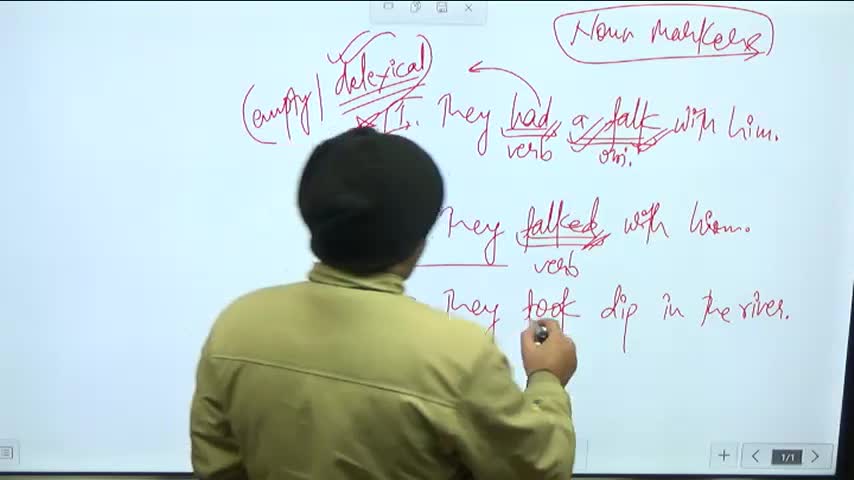 Noun Markers
(empty/ delexical)
1. They had a talk with him.
verb obj.
They talked with him.
verb
They took dip in the river.
1/1